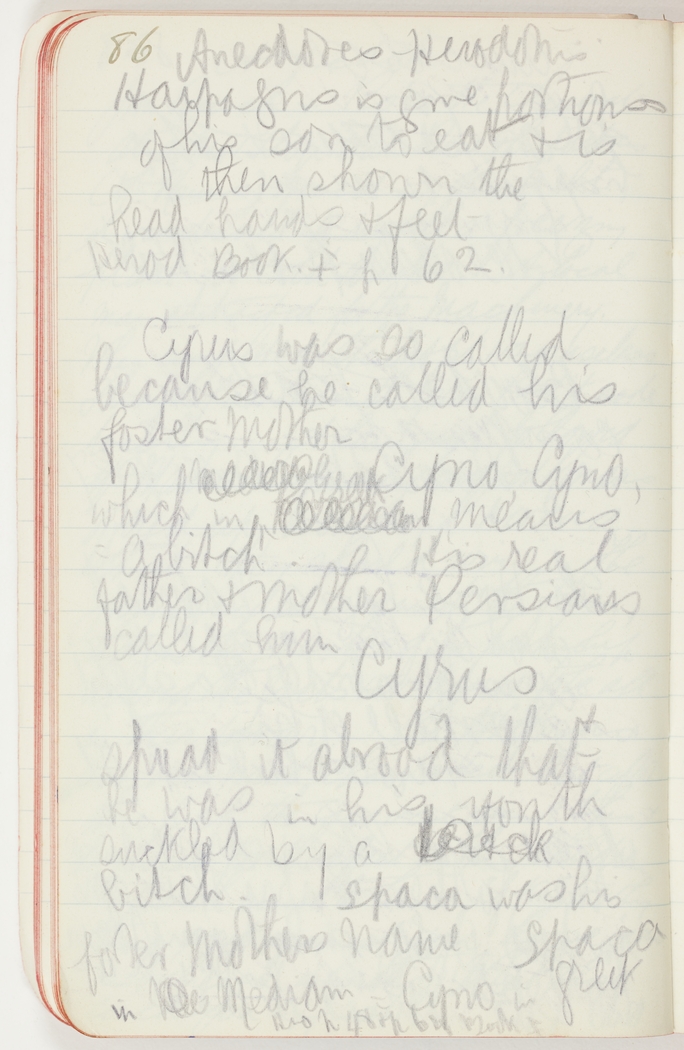 86 Anecdotes Herodotus
Harpagus is give portions
of his son to eat & is
then shown the
head hands & feet
Herod Book. I p 62.
Cyrus was so called
because he called his
foster mother
Cyno, Cyno,
which in means
= a bitch. His real
father & mother Persians
called him
Cyrus
& spread it abroad that
he was in his youth
suckled by a
bitch. Spaca was his
foster mothers name. Spaca
in Median = Cyno in greek